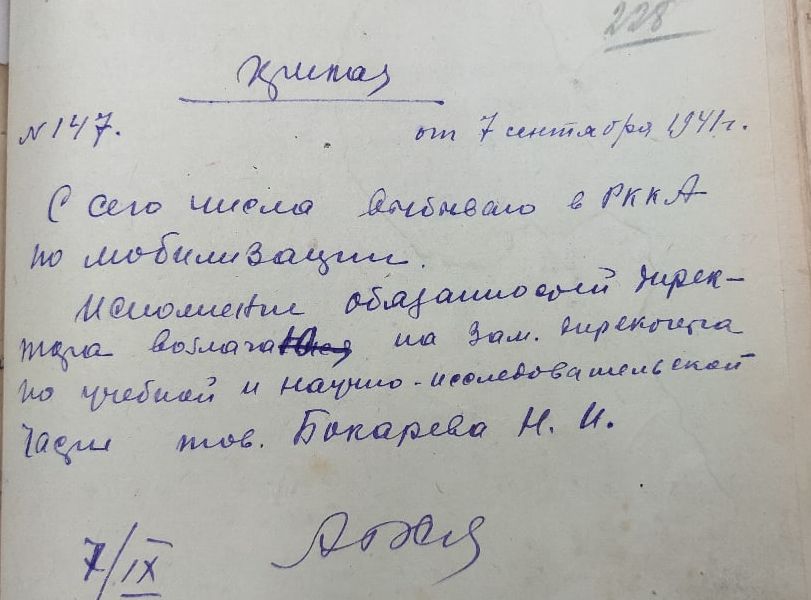 228
Приказ
№ 147. от 7 сентября 1941 г.
С сего числа выбываю в РККА
по мобилизации.
Исполнение обязанностей дирек-
тора возлагаю на зам. директора
по учебной и научно-исследовательской
части тов. Бокарева Н. И.
7/IX